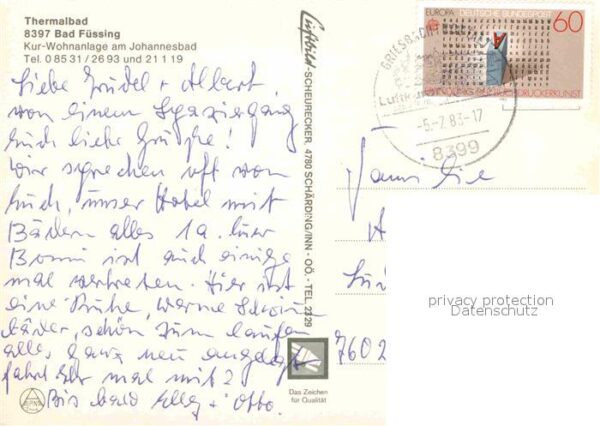 Thermalbad
8397 Bad Füssing
Kur-Wohnanlage am Johannesbad
Tel. 0 85 31 / 26 93 und 21 1 19
Liebe Trudel + Albert,
von einem Spaziergang
Euch liebe Grüße!
Wir sprechen oft von
Euch, unser Hotel mit
Bädern alles 1a. hier
ist auch einige
mal vertreten. Hier ist
eine Ruhe, warme
bäder, schön zum laufen
alles ganz neu angelegt
fahrt Ihr mal mit?
Bis bald Elly + Otto.
Luftbild-SCHEURECKER, 4780 SCHÄRDING/INN - OÖ. - TEL. 2329
Das Zeichen
für Qualität
EUROPA DEUTSCHE BUNDESPOST
60
ERFINDUNG DER BUCHDRUCKERKUNST
GRIESBACH
Luftkurort
-5.-7.83-17
8399
Familie
7602
privacy protection
Datenschutz